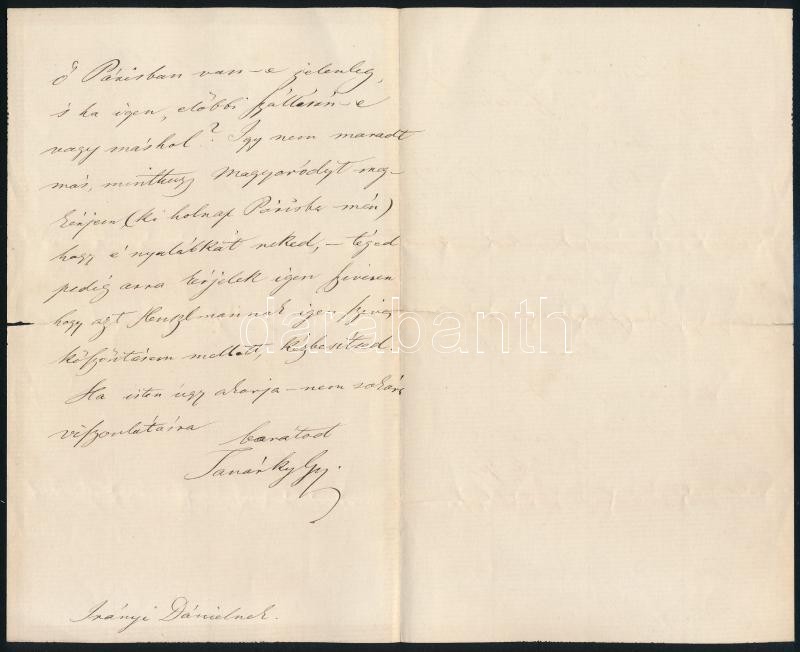 ő Párisban van-e jelenleg,
és ha igen, előbbi szállásán-e
vagy máshol? Igy nem maradt
más, minthogy Magyaródyt meg-
kérjem (ki holnap Párisba mén)
hogy é nyalábkát neked, – téged
pedig arra kérjelek igen szivesen
hogy azt Henszlmannak igen szives
köszöntésem mellett, kézbesítsed.
Ha isten úgy akarja – nem sokára
viszontlátásra
barátod
Tanárky Gy.
Irányi Dánielnek.
darabanth